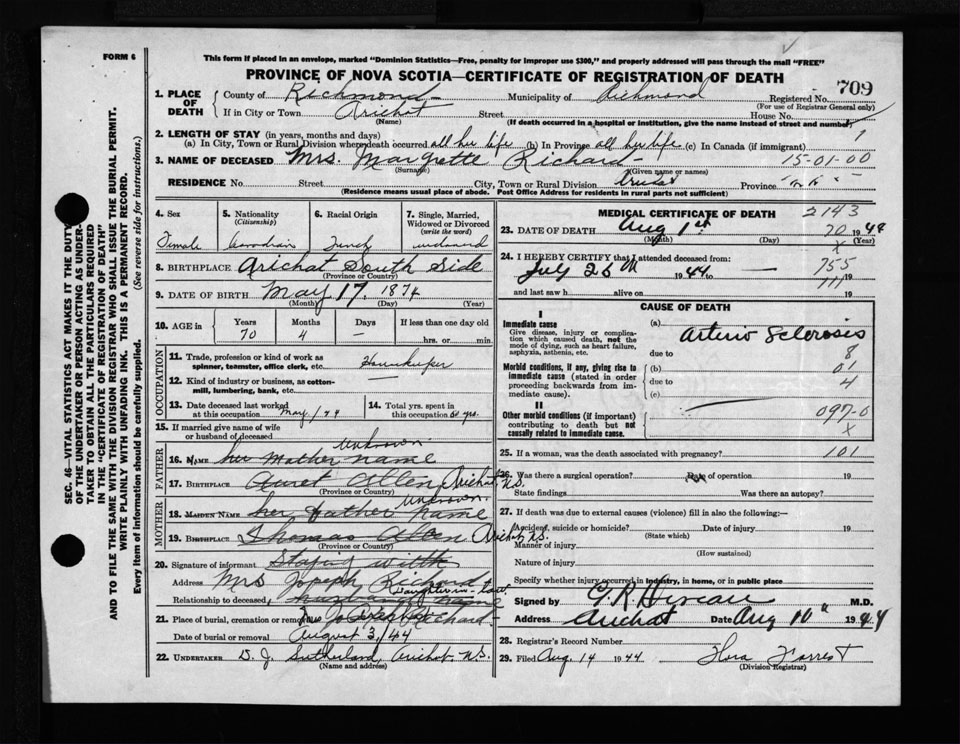 FORM 6
This form if placed in an envelope, marked "Dominion Statistics—Free, penalty for improper use $300," and properly addressed will pass through the mail "FREE"
PROVINCE OF NOVA SCOTIA—CERTIFICATE OF REGISTRATION OF DEATH
709
1. PLACE OF DEATH County of Richmond Municipality of Richmond Registered No.
(For use of Registrar General only)
If in City or Town Arichat Street House No.
(Name) (If death occurred in a hospital or institution, give the name instead of street and number)
2. LENGTH OF STAY (in years, months and days)
(a) In City, Town or Rural Division where death occurred all her life (b) In Province all her life (c) In Canada (if immigrant)
1
3. NAME OF DECEASED Mrs. Margrette Richard 15-01-00
(Surname) (Given name or names)
RESIDENCE No. Street City, Town or Rural Division Province
(Residence means usual place of abode. Post Office Address for residents in rural parts not sufficient)
SEC. 46—VITAL STATISTICS ACT MAKES IT THE DUTY
OF THE UNDERTAKER OR PERSON ACTING AS UNDER-
TAKER TO OBTAIN ALL THE PARTICULARS REQUIRED
IN THE "CERTIFICATE OF REGISTRATION OF DEATH"
AND TO FILE THE SAME WITH THE DIVISION REGISTRAR WHO SHALL ISSUE THE BURIAL PERMIT.
WRITE PLAINLY WITH UNFADING INK. THIS IS A PERMANENT RECORD.
Every item of information should be carefully supplied. (See reverse side for instructions.)
4. Sex Female
5. Nationality (Citizenship) Canadian
6. Racial Origin French
7. Single, Married, Widowed or Divorced (write the word) widowed
8. BIRTHPLACE Arichat South Side
(Province or Country)
9. DATE OF BIRTH May 17, 1874
(Month) (Day) (Year)
10. AGE in Years 70 Months 4 Days – If less than one day old hrs. or min.
OCCUPATION
11. Trade, profession or kind of work as spinner, teamster, office clerk, etc. Housekeeper
12. Kind of industry or business, as cotton-mill, lumbering, bank, etc. —
13. Date deceased last worked at this occupation May/44
14. Total yrs. spent in this occupation 50 yrs.
15. If married give name of wife or husband of deceased
FATHER
unknown
16. Name her Mother name
17. BIRTHPLACE Allen Arichat, N.S.
(Province or Country)
MOTHER
unknown
18. MAIDEN NAME her father name
19. BIRTHPLACE Thomas Allen Arichat, N.S.
(Province or Country)
20. Signature of informant Staying with
Address Mrs Joseph Richard
Daughter-in-law
Relationship to deceased, husband name
21. Place of burial, cremation or removal
Date of burial or removal August 3/44
22. UNDERTAKER D. J. Sutherland, Arichat, N.S.
(Name and address)
MEDICAL CERTIFICATE OF DEATH 2143
23. DATE OF DEATH Aug 1st 20 1944
(Month) (Day) x (Year)
24. I HEREBY CERTIFY that I attended deceased from:
July 25th 1944 to — 755 19
and last saw h alive on 19
CAUSE OF DEATH
I
Immediate cause
Give disease, injury or complication which caused death, not the mode of dying, such as heart failure, asphyxia, asthenia, etc.
(a) Arterio Sclerosis
due to 8
Morbid conditions, if any, giving rise to immediate cause (stated in order proceeding backwards from immediate cause).
(b) 01
due to 4
(c)
II
Other morbid conditions (if important) contributing to death but not causally related to immediate cause.
097-0
x
25. If a woman, was the death associated with pregnancy? 101
26. Was there a surgical operation? Date of operation 19
State findings Was there an autopsy?
27. If death was due to external causes (violence) fill in also the following:—
Accident, suicide or homicide? Date of injury 19
(State which)
Manner of injury
(How sustained)
Nature of injury
Specify whether injury occurred in industry, in home, or in public place
Signed by M.D.
Address Arichat Date Aug 10th 1944
28. Registrar's Record Number
29. Filed Aug. 14 1944 Flora Forrest
(Division Registrar)